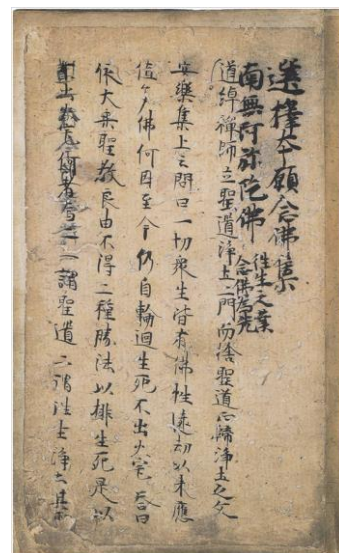 選擇本願念佛集
南無阿弥陀佛 往生之業
念佛為先
道綽禪師立聖道浄土二門而捨聖道正歸浄土之文
安樂集上云問曰一切衆生皆有佛性遠劫以来應
值多佛何因至今仍自輪迴生死不出火宅答曰
依大乘聖教良由不得二種勝法以排生死是以
者為二一謂聖道二謂往生浄土其